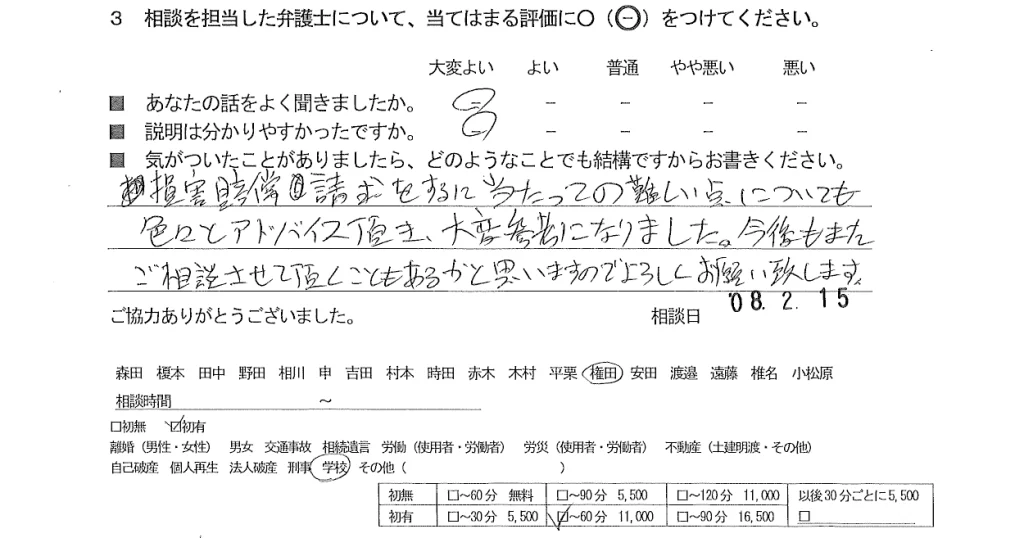 3 相談を担当した弁護士について、当てはまる評価に〇（㊀）をつけてください。
大変よい よい 普通 やや悪い 悪い
■ あなたの話をよく聞きましたか。 － － － － －
■ 説明は分かりやすかったですか。 － － － － －
■ 気がついたことがありましたら、どのようなことでも結構ですからお書きください。
損害賠償請求をするに当たっての難しい点についても
色々とアドバイス頂き、大変参考になりました。今後もまた
ご相談させて頂くこともあるかと思いますのでよろしくお願い致します。
ご協力ありがとうございました。 相談日 '08.2.15
森田 榎本 田中 野田 相川 申 吉田 村本 時田 赤木 木村 平栗 権田 安田 渡邉 遠藤 椎名 小松原
相談時間 ～
□初無 ☑初有
離婚（男性・女性） 男女 交通事故 相続遺言 労働（使用者・労働者） 労災（使用者・労働者） 不動産（土建明渡・その他）
自己破産 個人再生 法人破産 刑事 学校 その他（ ）
初無 □～60分 無料 □～90分 5,500 □～120分 11,000 以後30分ごとに5,500
初有 □～30分 5,500 ☑～60分 11,000 □～90分 16,500 □